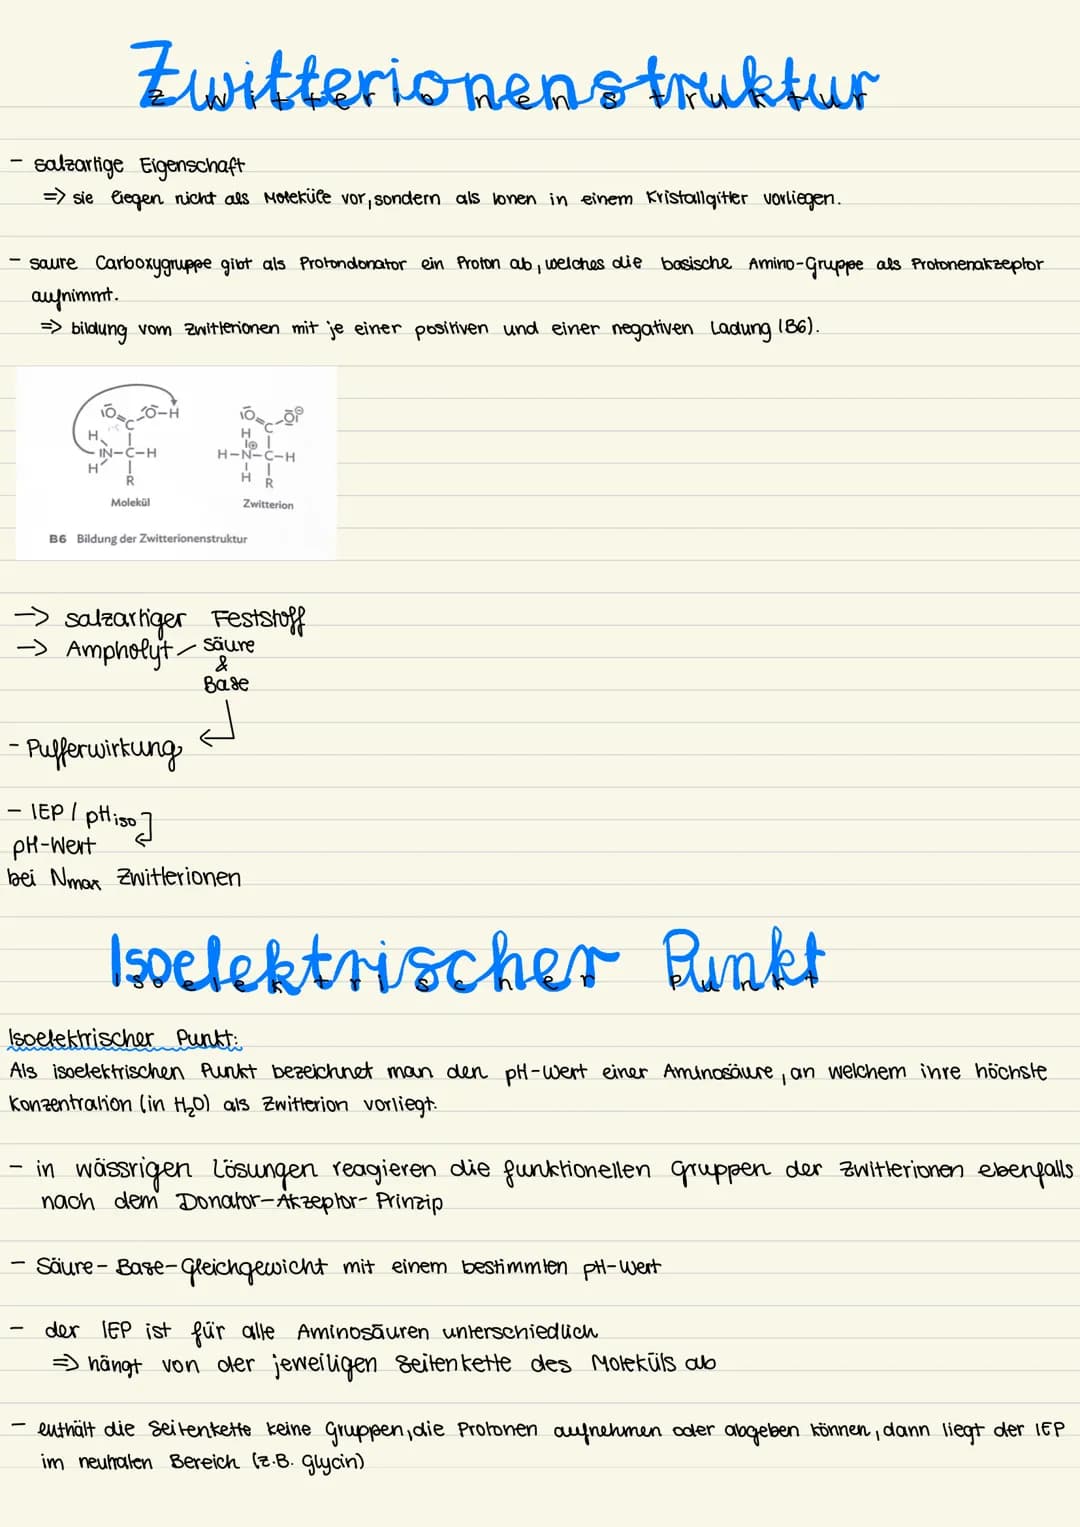 Zwitterionenstruktur
Zwitterionenstruktur
- salzartige Eigenschaft
=> sie liegen nicht als Moleküle vor, sondern als Ionen in einem Kristallgitter vorliegen.
- saure Carboxygruppe gibt als Protondonator ein Proton ab, welches die basische Amino-Gruppe als Protonenakzeptor
aufnimmt.
=> bildung vom Zwitterionen mit je einer positiven und einer negativen Ladung (B6).
Molekül Zwitterion
B6 Bildung der Zwitterionenstruktur
-> salzartiger Feststoff
-> Ampholyt - Säure
&
Base
- Pufferwirkung
- IEP / pHiso
pH-Wert
bei Nmax Zwitterionen
Isoelektrischer Punkt
Isoelektrischer Punkt
Isoelektrischer Punkt:
Als isoelektrischen Punkt bezeichnet man den pH-Wert einer Aminosäure, an welchem ihre höchste
Konzentration (in H₂O) als Zwitterion vorliegt.
- in wässrigen Lösungen reagieren die funktionellen Gruppen der Zwitterionen ebenfalls
nach dem Donator-Akzeptor-Prinzip
- Säure-Base-Gleichgewicht mit einem bestimmten pH-Wert
- der IEP ist für alle Aminosäuren unterschiedlich
=> hängt von der jeweiligen Seitenkette des Moleküls ab
- enthält die Seitenkette keine Gruppen, die Protonen aufnehmen oder abgeben können, dann liegt der IEP
im neutralen Bereich (z.B. Glycin)